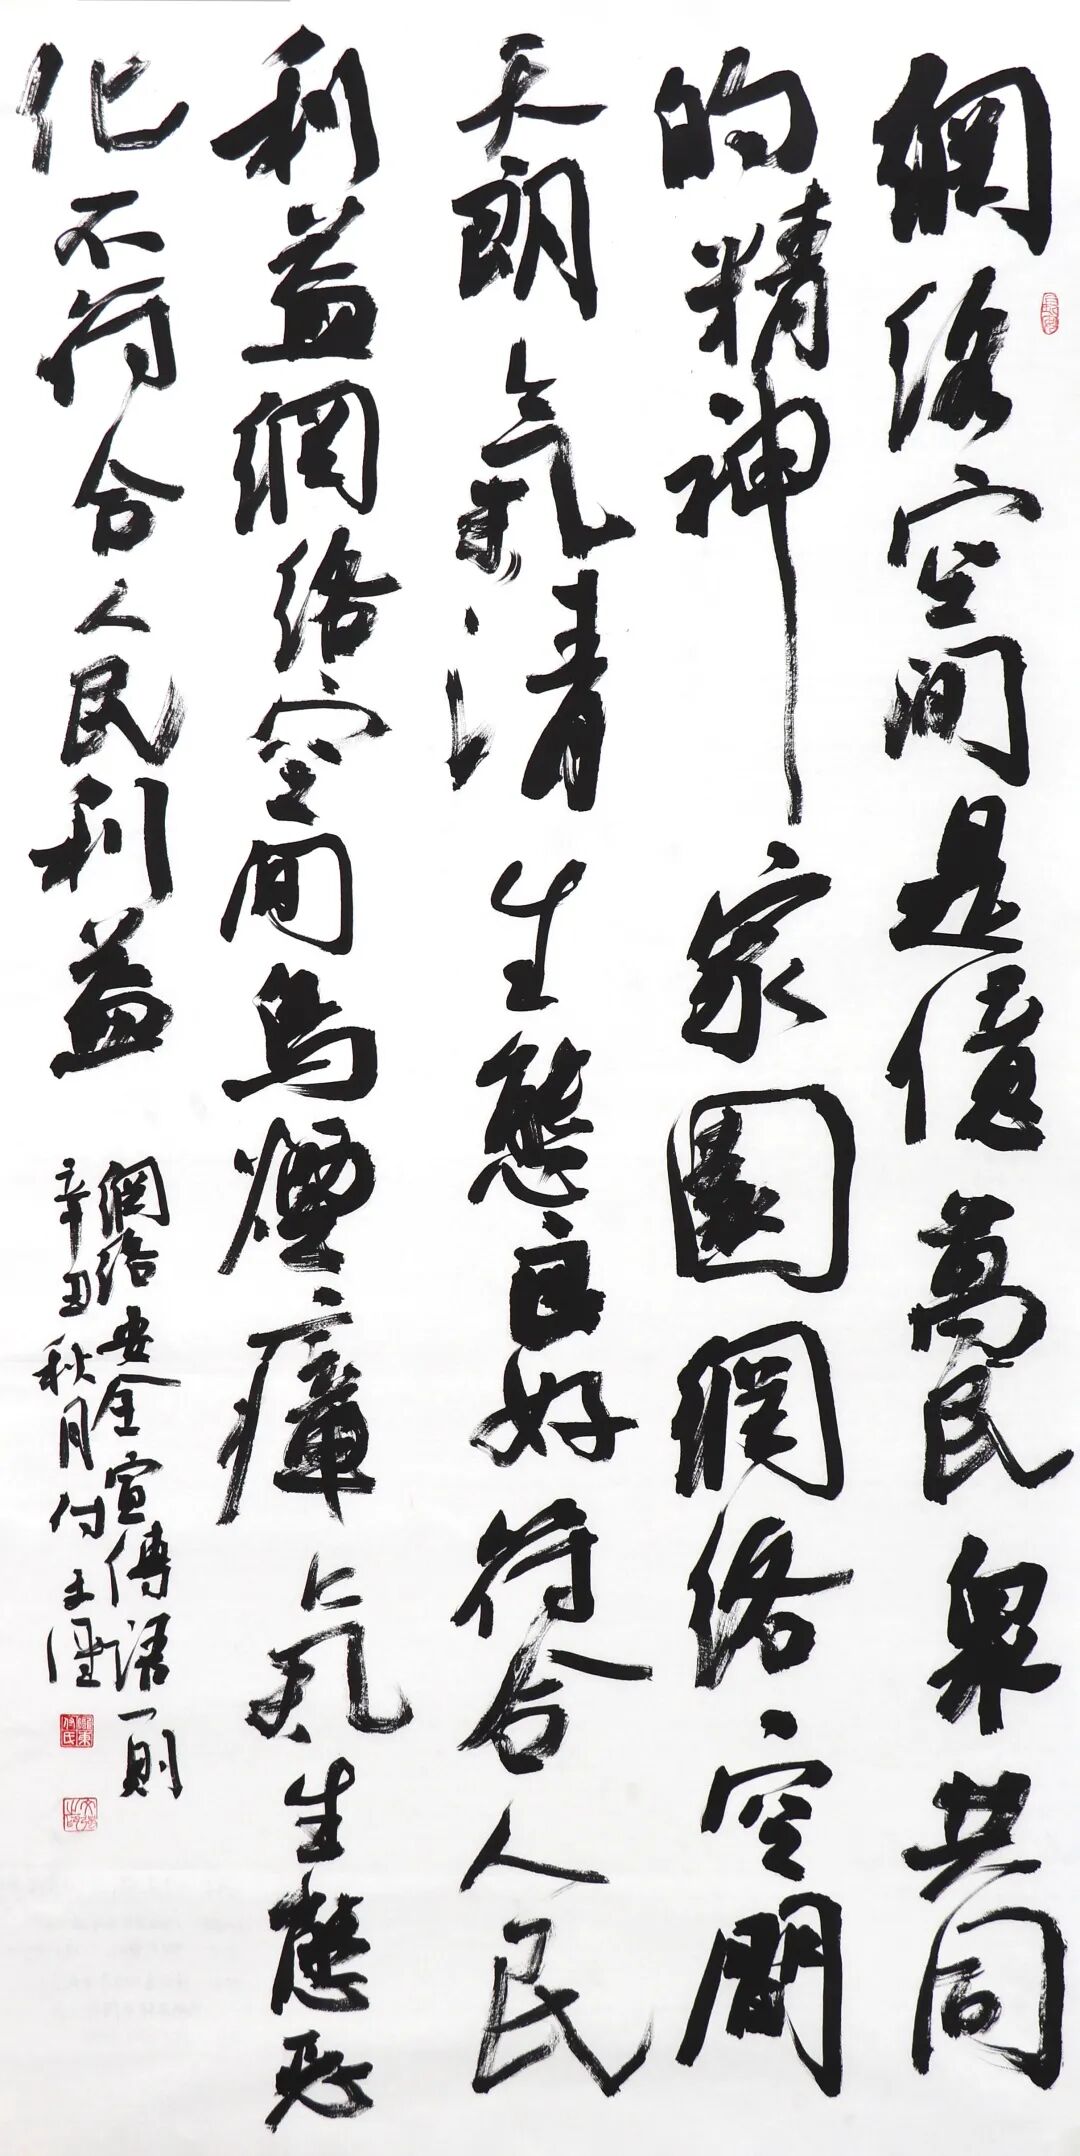 網絡空間是億萬民眾共同
的精神家園網絡空間
天朗氣清生態良好符合人民
利益網絡空間烏煙瘴氣生態恶
化不符合人民利益
網絡安全宣傳語一則
辛丑秋月付